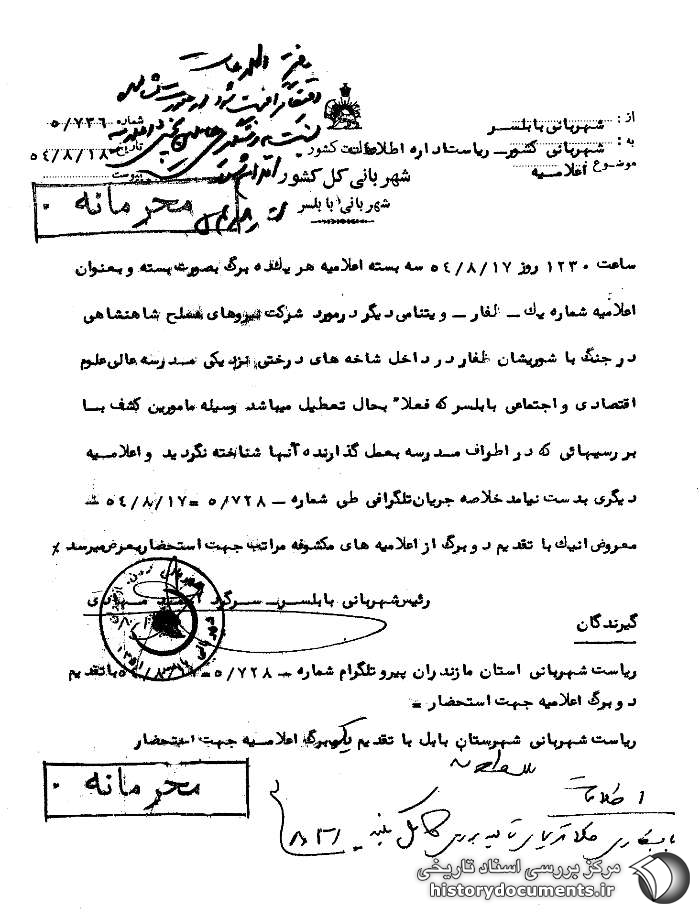 دفتر اطلاعات
از : شهربانی بابلسر
به : شهربانی کشور ـ ریاست اداره اطلاعات
موضوع اعلامیه
شماره ۵/۷۳۶
تاریخ ۵۴/۸/۱۸
پیوست
شهربانی کل کشور
شهربانی بابلسر
محرمانه ۰
ساعت ۱۲۳۰ روز ۵۴/۸/۱۷ سه بسته اعلامیه هر یک ده برگ بصورت بسته و بعنوان
اعلامیه شماره یک ـ ظفار ـ ویتنامی دیگر در مورد شرکت نیروهای مسلح شاهنشاهی
در جنگ با شورشیان ظفار در داخل شاخه های درختی نزدیکی مدرسه عالی علوم
اقتصادی و اجتماعی بابلسر که فعلاً بحال تعطیل میباشد وسیله مامورین کشف بـا
بررسیهائی که در اطراف مدرسه بعمل گذارنده آنها شناخته نگردید و اعلامیـه
دیگری بدست نیامد خلاصه جریان تلگرافی طی شماره ـ ۵/۷۲۸ = ۵۴/۸/۱۷ =
معروض اینک با تقدیم دو برگ از اعلامیه های مکشوفه مراتب جهت استحضار بعرض میرسد ٪
رئیس شهربانی بابلسر ـ سرگرد
گیرندگان
ریاست شهربانی استان مازندران پیرو تلگرام شماره ـ ۵/۷۲۸ = ۵۴/۸/۱۷ با تقدیم
دو برگ اعلامیه جهت استحضار =
ریاست شهربانی شهرستان بابل با تقدیم یک برگ اعلامیه جهت استحضار
محرمانه ۰
اطلاعات
مرکز بررسی اسناد تاریخی
historydocuments.ir